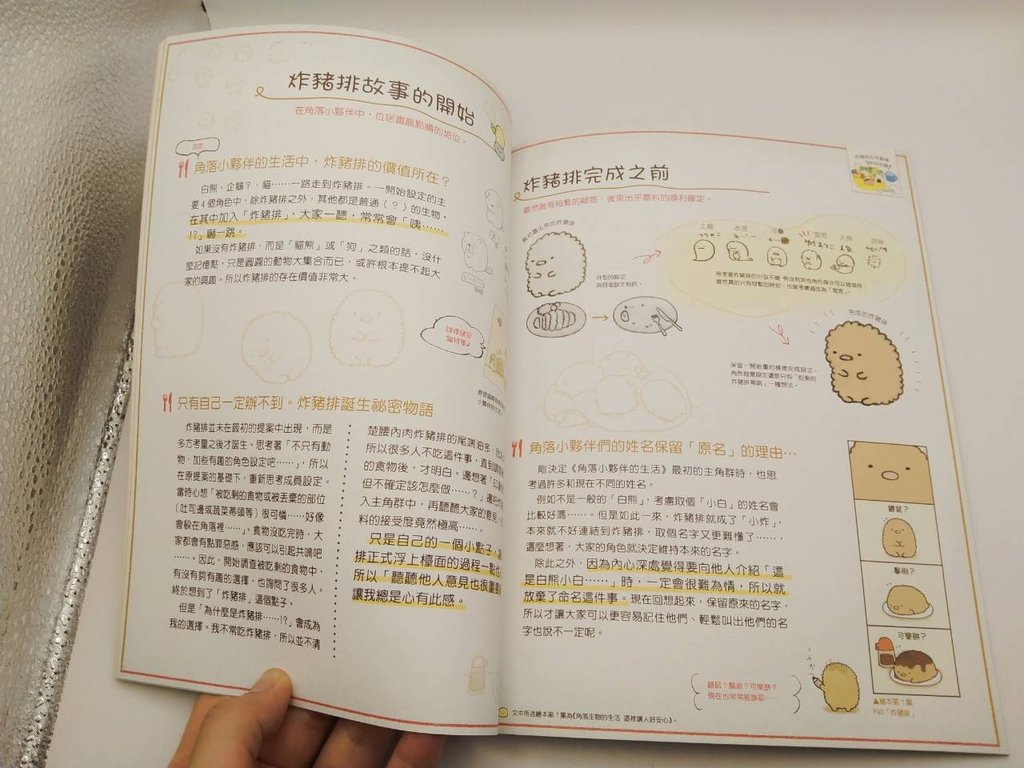 炸豬排故事的開始
在角落小夥伴中，位居畫龍點睛的地位。
角落小夥伴的生活中，炸豬排的價值所在？
白熊、企鵝？、貓……一路走到炸豬排。一開始設定的主
要4個角色中，除炸豬排之外，其他都是普通（？）的生物。
在其中加入「炸豬排」，大家一聽，常常會「咦……
!?」嚇一跳。
如果沒有炸豬排，而是「貓熊」或「狗」之類的話，沒什
麼記憶點，只是圓圓的動物大集合而已，或許根本提不起大
家的興趣。所以炸豬排的存在價值非常大。
只有自己一定辦不到。炸豬排誕生祕密物語
炸豬排並未在最初的提案中出現，而是
多方考量之後才誕生。思考著「不只有動
物，加些有趣的角色設定吧……」，所以
在原提案的基礎下，重新思考成員設定。
當時心想「被吃剩的食物或被丟棄的部位
（吐司邊或蔬菜蒂頭等）很可憐……好像
會躲在角落裡……」，食物沒吃完時，大
家都會有點罪惡感，應該可以引起共鳴吧
……。因此，開始調查被吃剩的食物中，
有沒有夠有趣的選擇，也詢問了很多人，
終於想到了「炸豬排」這個點子。
但是「為什麼是炸豬排……!?」會成為
我的選擇。我不常吃炸豬排，所以並不清
楚腰內肉炸豬排的尾端油多，
所以很多人不吃這件事，直到
的食物後，才明白。邊想著「
但不確定該怎麼做……？」邊
入主角群中，再聽聽大家的意見，
料的接受度竟然極高……。
只是自己的一個小點子，
排正式浮上檯面的過程一點也
所以「聽聽他人意見也很重要
讓我總是心有此感。
炸豬排完成之前
雖然曾有短暫的疑惑，後來出乎意料的順利確定。
最初畫出來的炸豬排
外型的設定
土龍
水母
雪男
人魚
完成的炸豬排
保留一開始畫的樣貌完成設定。
角色背景設定還是只有「吃剩的
炸豬排常哦」一種想法。
角落小夥伴們的姓名保留「原名」的理由…
剛決定《角落小夥伴的生活》最初的主角群時，也思
考過許多和現在不同的姓名。
例如不是一般的「白熊」，考慮取個「小白」的姓名會
比較好嗎……。但是如此一來，炸豬排就成了「小炸」，
本來就不好連結到炸豬排，取個名字又更難懂了……，
這麼想著，大家的角色就決定維持本來的名字。
除此之外，因為內心深處覺得要向他人介紹「這
是白熊小白……」時，一定會很難為情，所以就
放棄了命名這件事。現在回想起來，保留原來的名字，
所以才讓大家可以更容易記住他們、輕鬆叫出他們的名
字也說不一定呢。
鼴鼠？
鬃刷？
可樂餅？
鼴鼠？鬃刷？可樂餅？
現在也常常被誤認……
▲繪本第1集
P40「炸豬排」
文中所述繪本第1集為《角落生物的生活 這裡讓人好安心》。